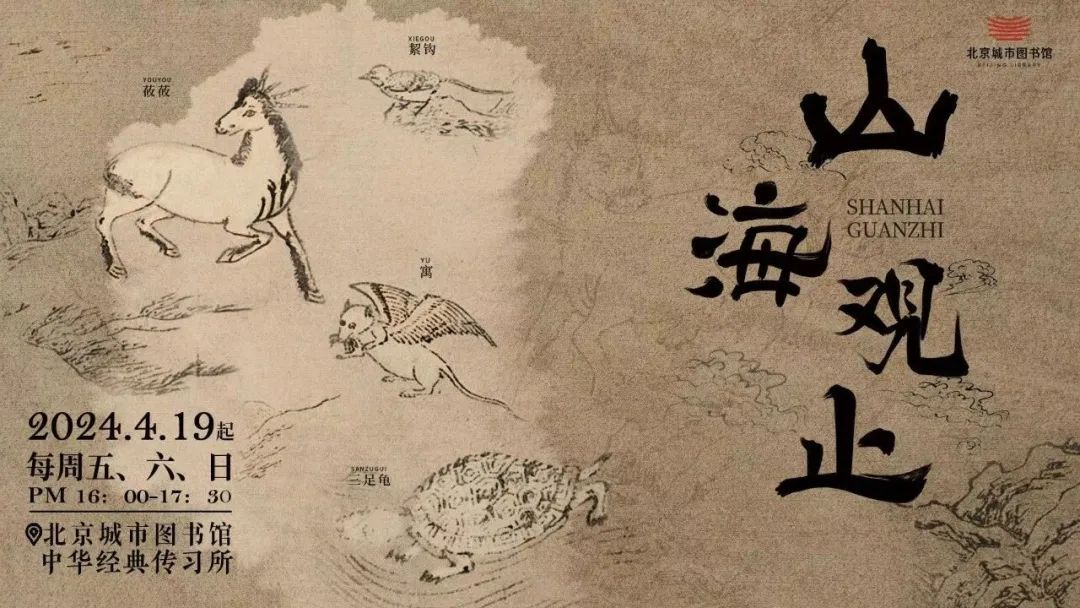 北京城市图书馆
BEIJING LIBRARY
山
海
SHANHAI
GUANZHI
观
止
XIEGOU
絜钩
YOUYOU
莜莜
YU
寓
SANZUGUI
三足龟
2024.4.19起
每周五、六、日
PM 16：00-17：30
北京城市图书馆
中华经典传习所